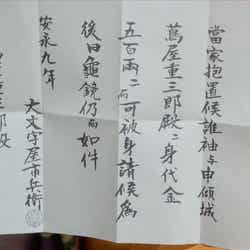 當家抱置候誰袖与申傾城
蔦屋重三郎殿ニ身代金
五百両ニ而可被身請候為
後日龜鏡仍而如件
安永九年
大文字屋市兵衛
重三郎殿